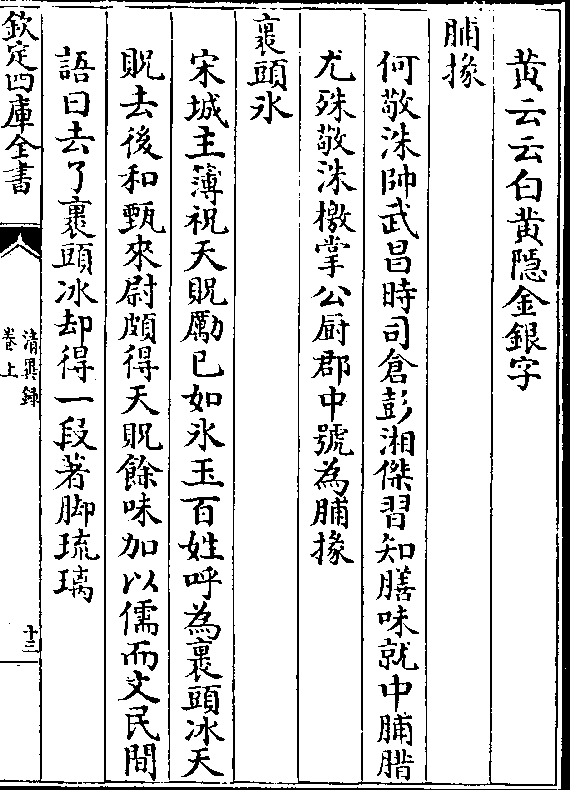 黄云云白黄隠金銀字
脯掾
何敬洙帥武昌時司倉彭湘傑習知膳味就中脯腊
尤殊敬洙檄掌公厨郡中號為脯掾
裹頭氷
宋城主簿祝天貺勵已如氷玉百姓呼為裹頭冰天
貺去後和甄來尉頗得天貺餘味加以儒而文民間
語曰去了裹頭冰却得一段著脚琉璃
欽定四庫全書
清異録
卷上
十三